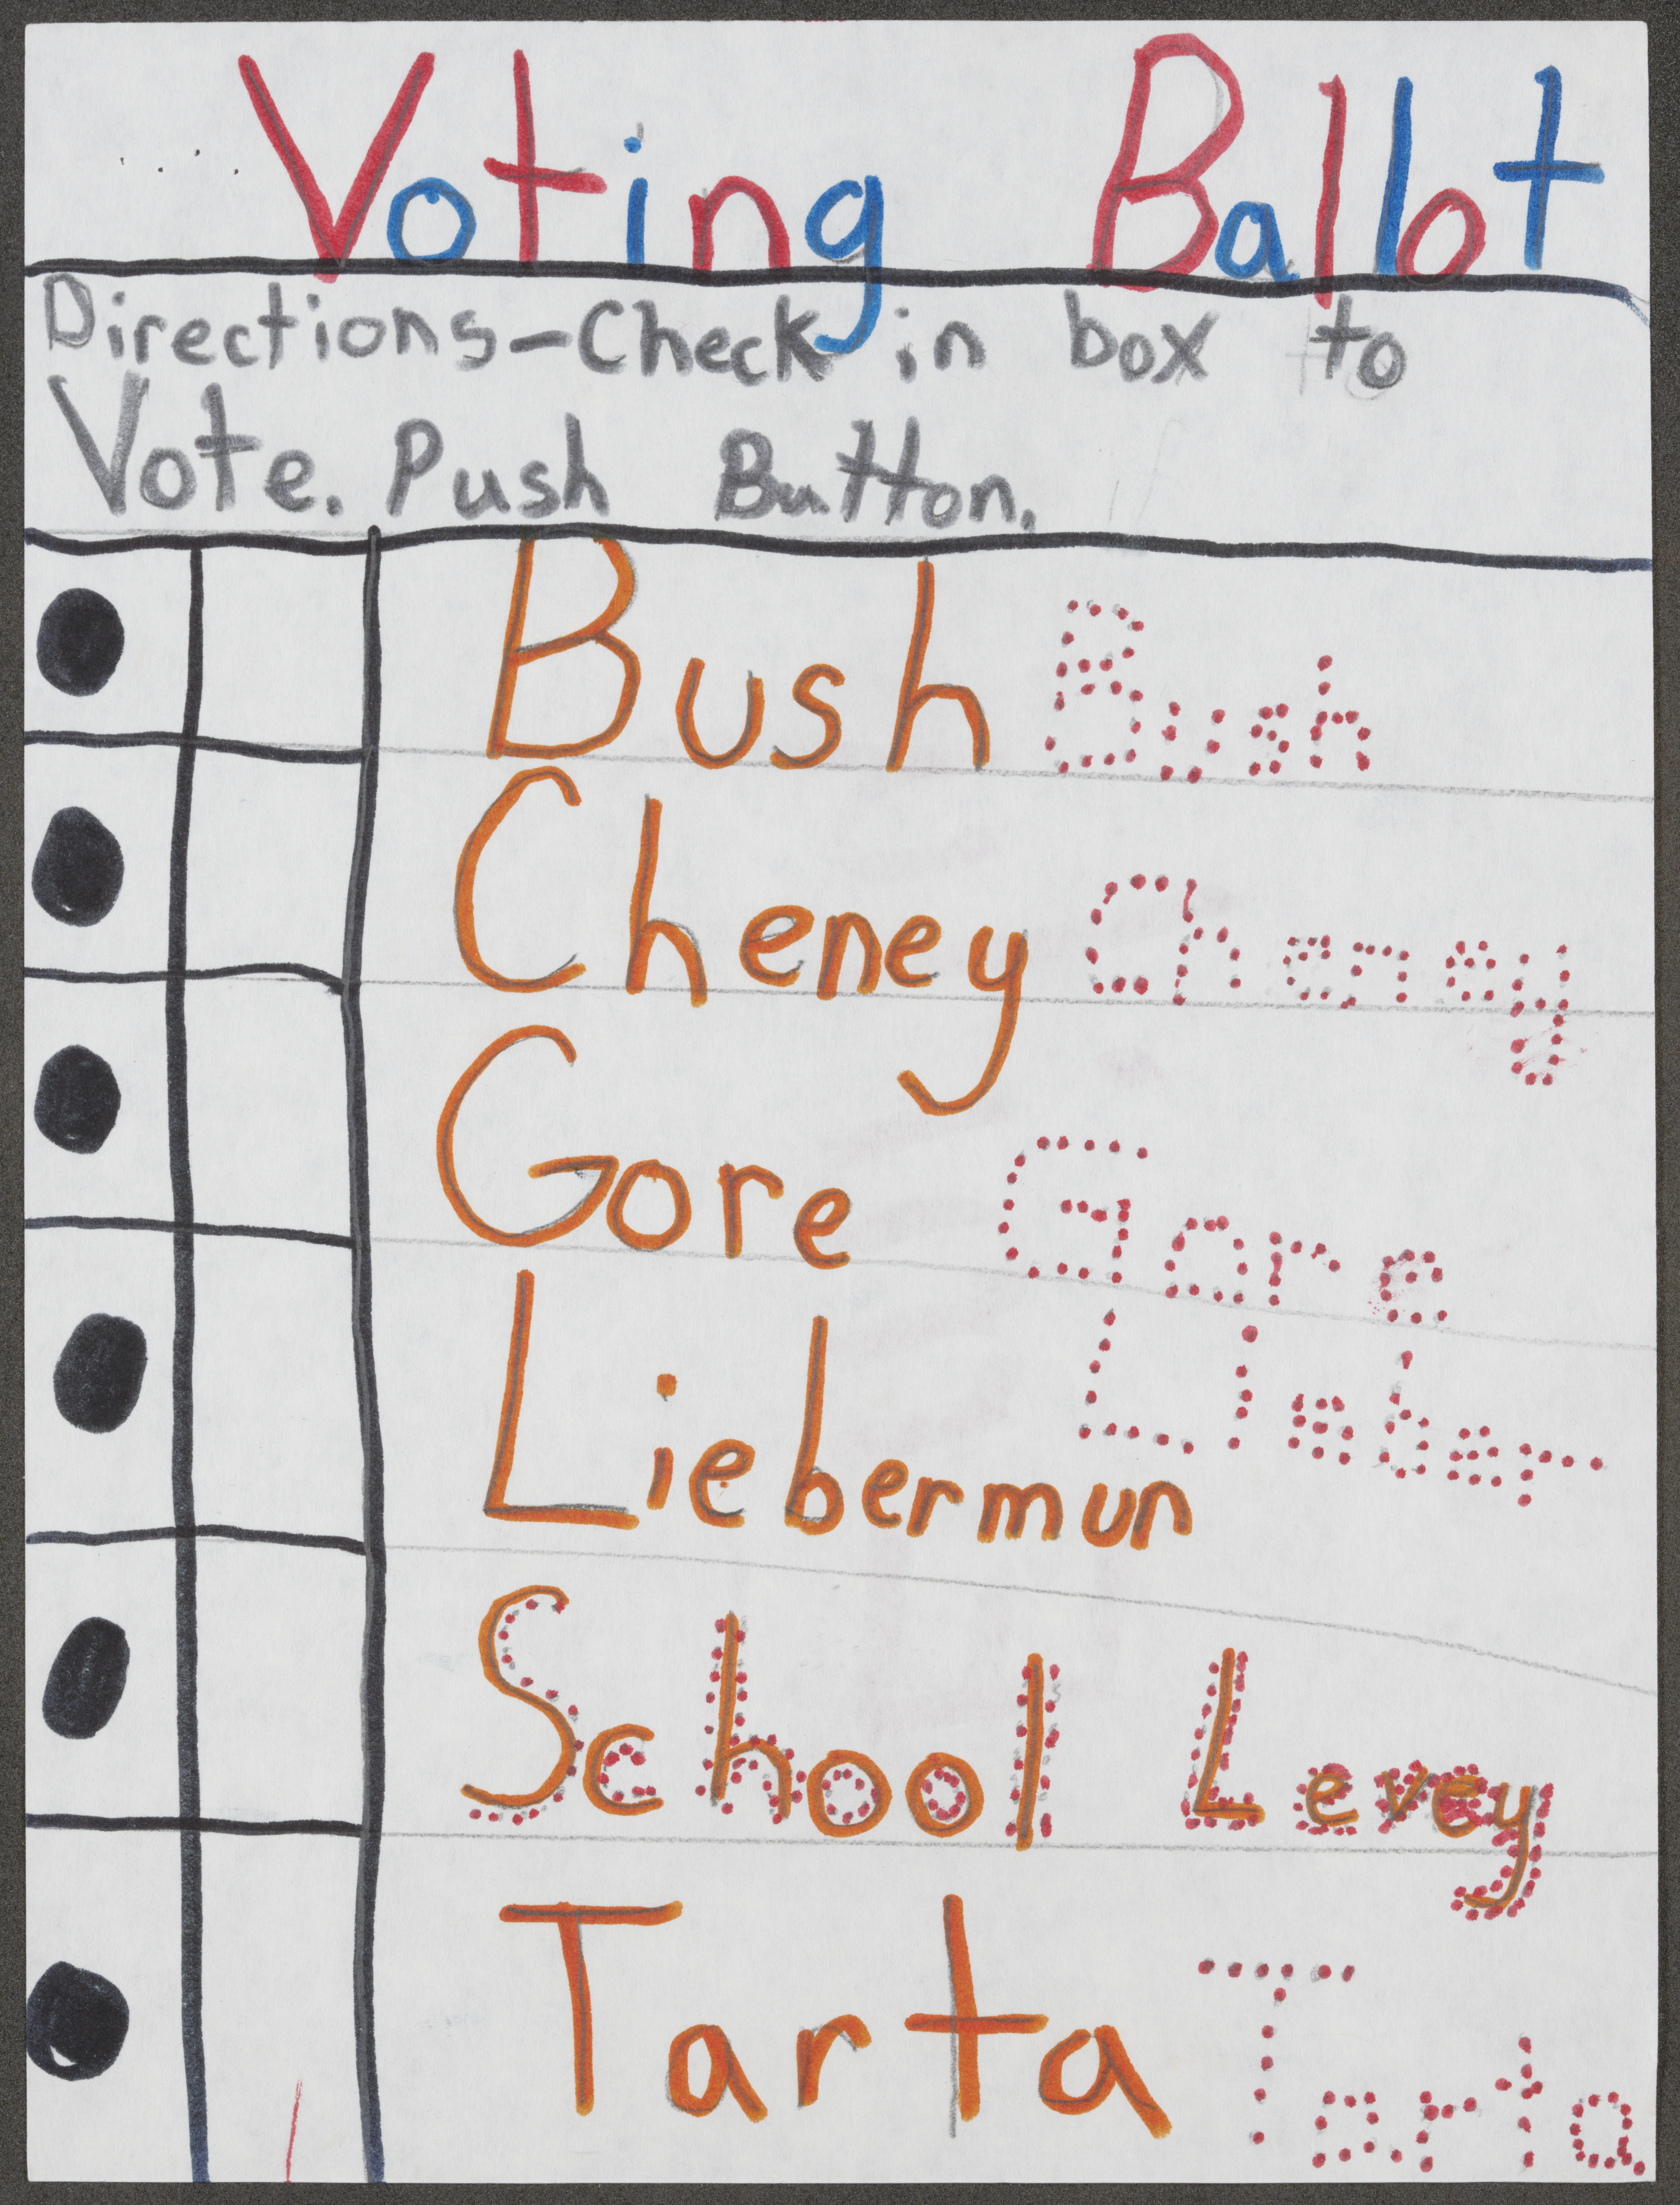 Voting Ballot
Directions-Check in box to
Vote. Push Button.
Bush Bush
Cheney Cheney
Gore Gore
Liebermun Lieber
School Levey
Tarta Tarta